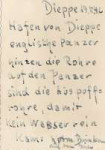 Dieppe
Hafen von Dieppe
englische Panzer
hinten die Rohre
auf den Panzer
sind die Auspuff-
rohre, damit
kein Wasser rein
kam